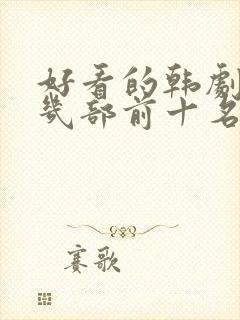 好看的韩劇
幾部前十名
赛歌